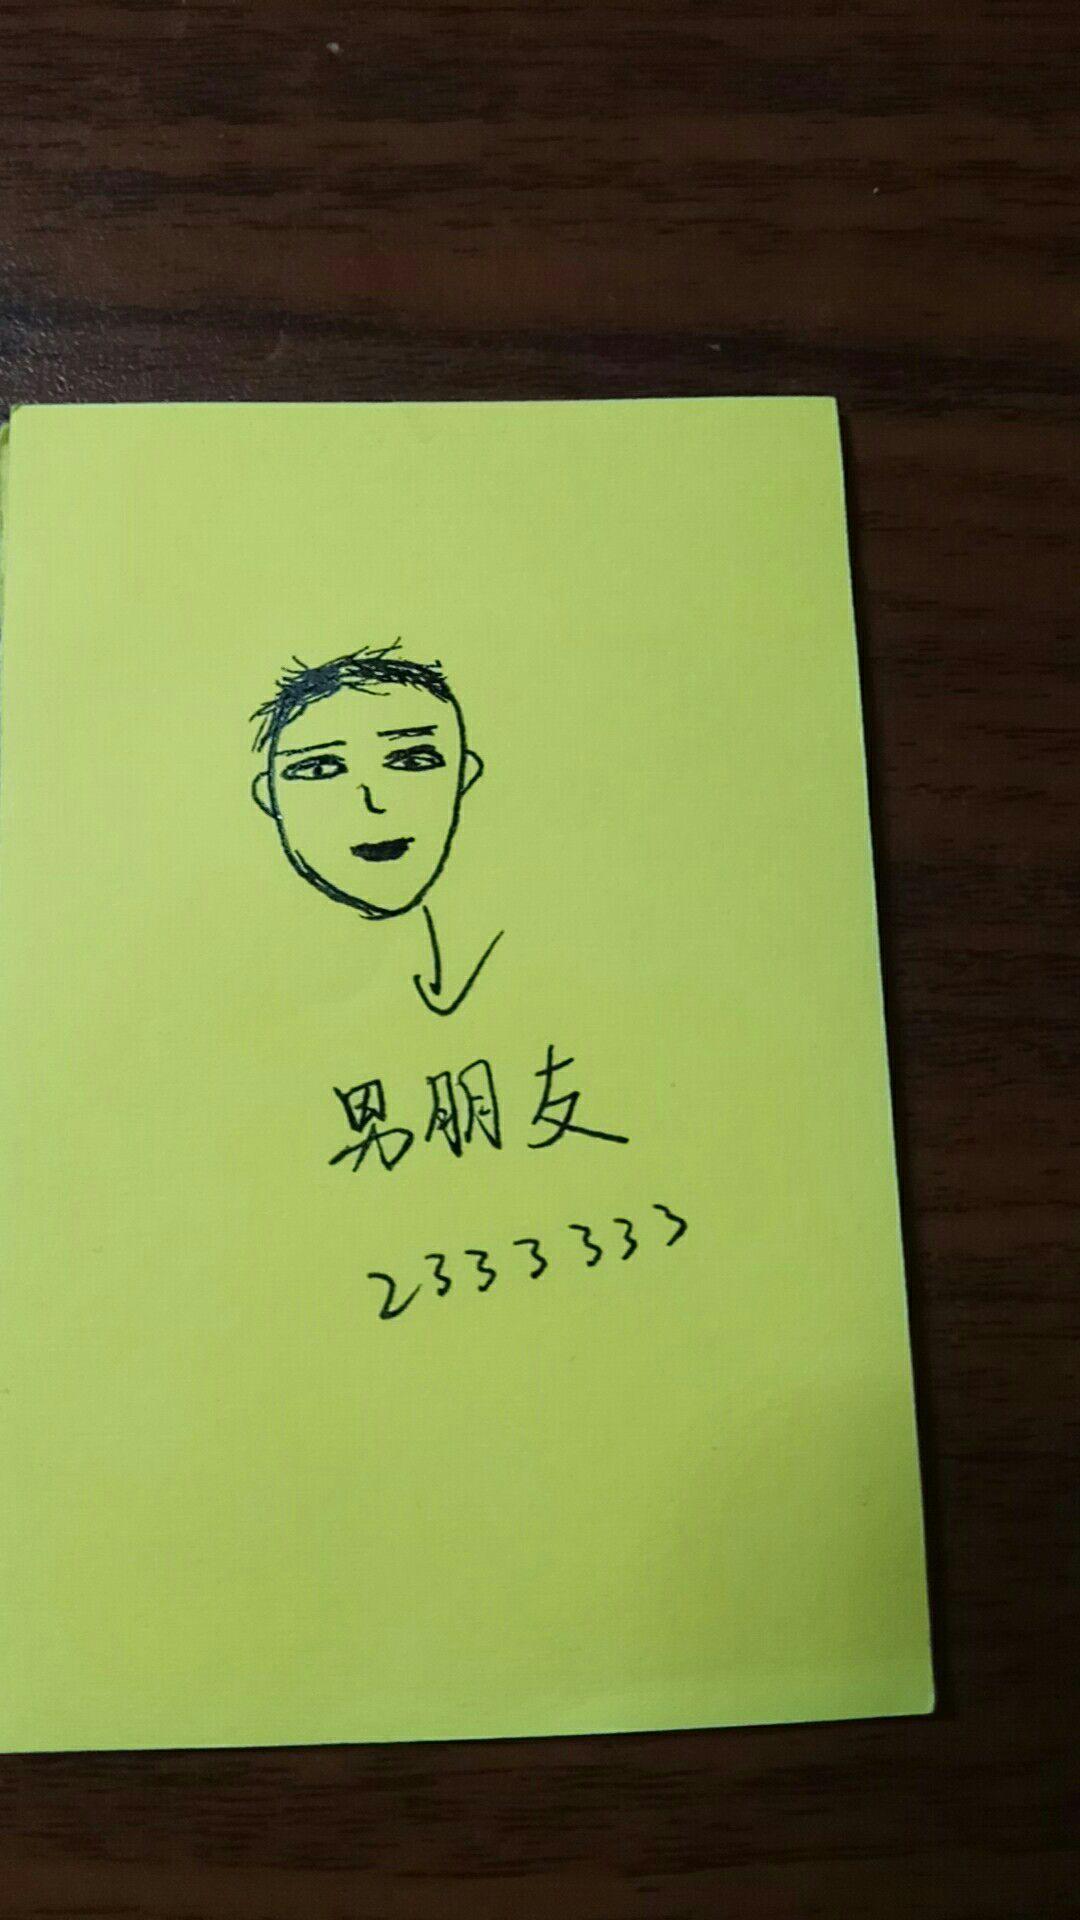 男朋友
2333333